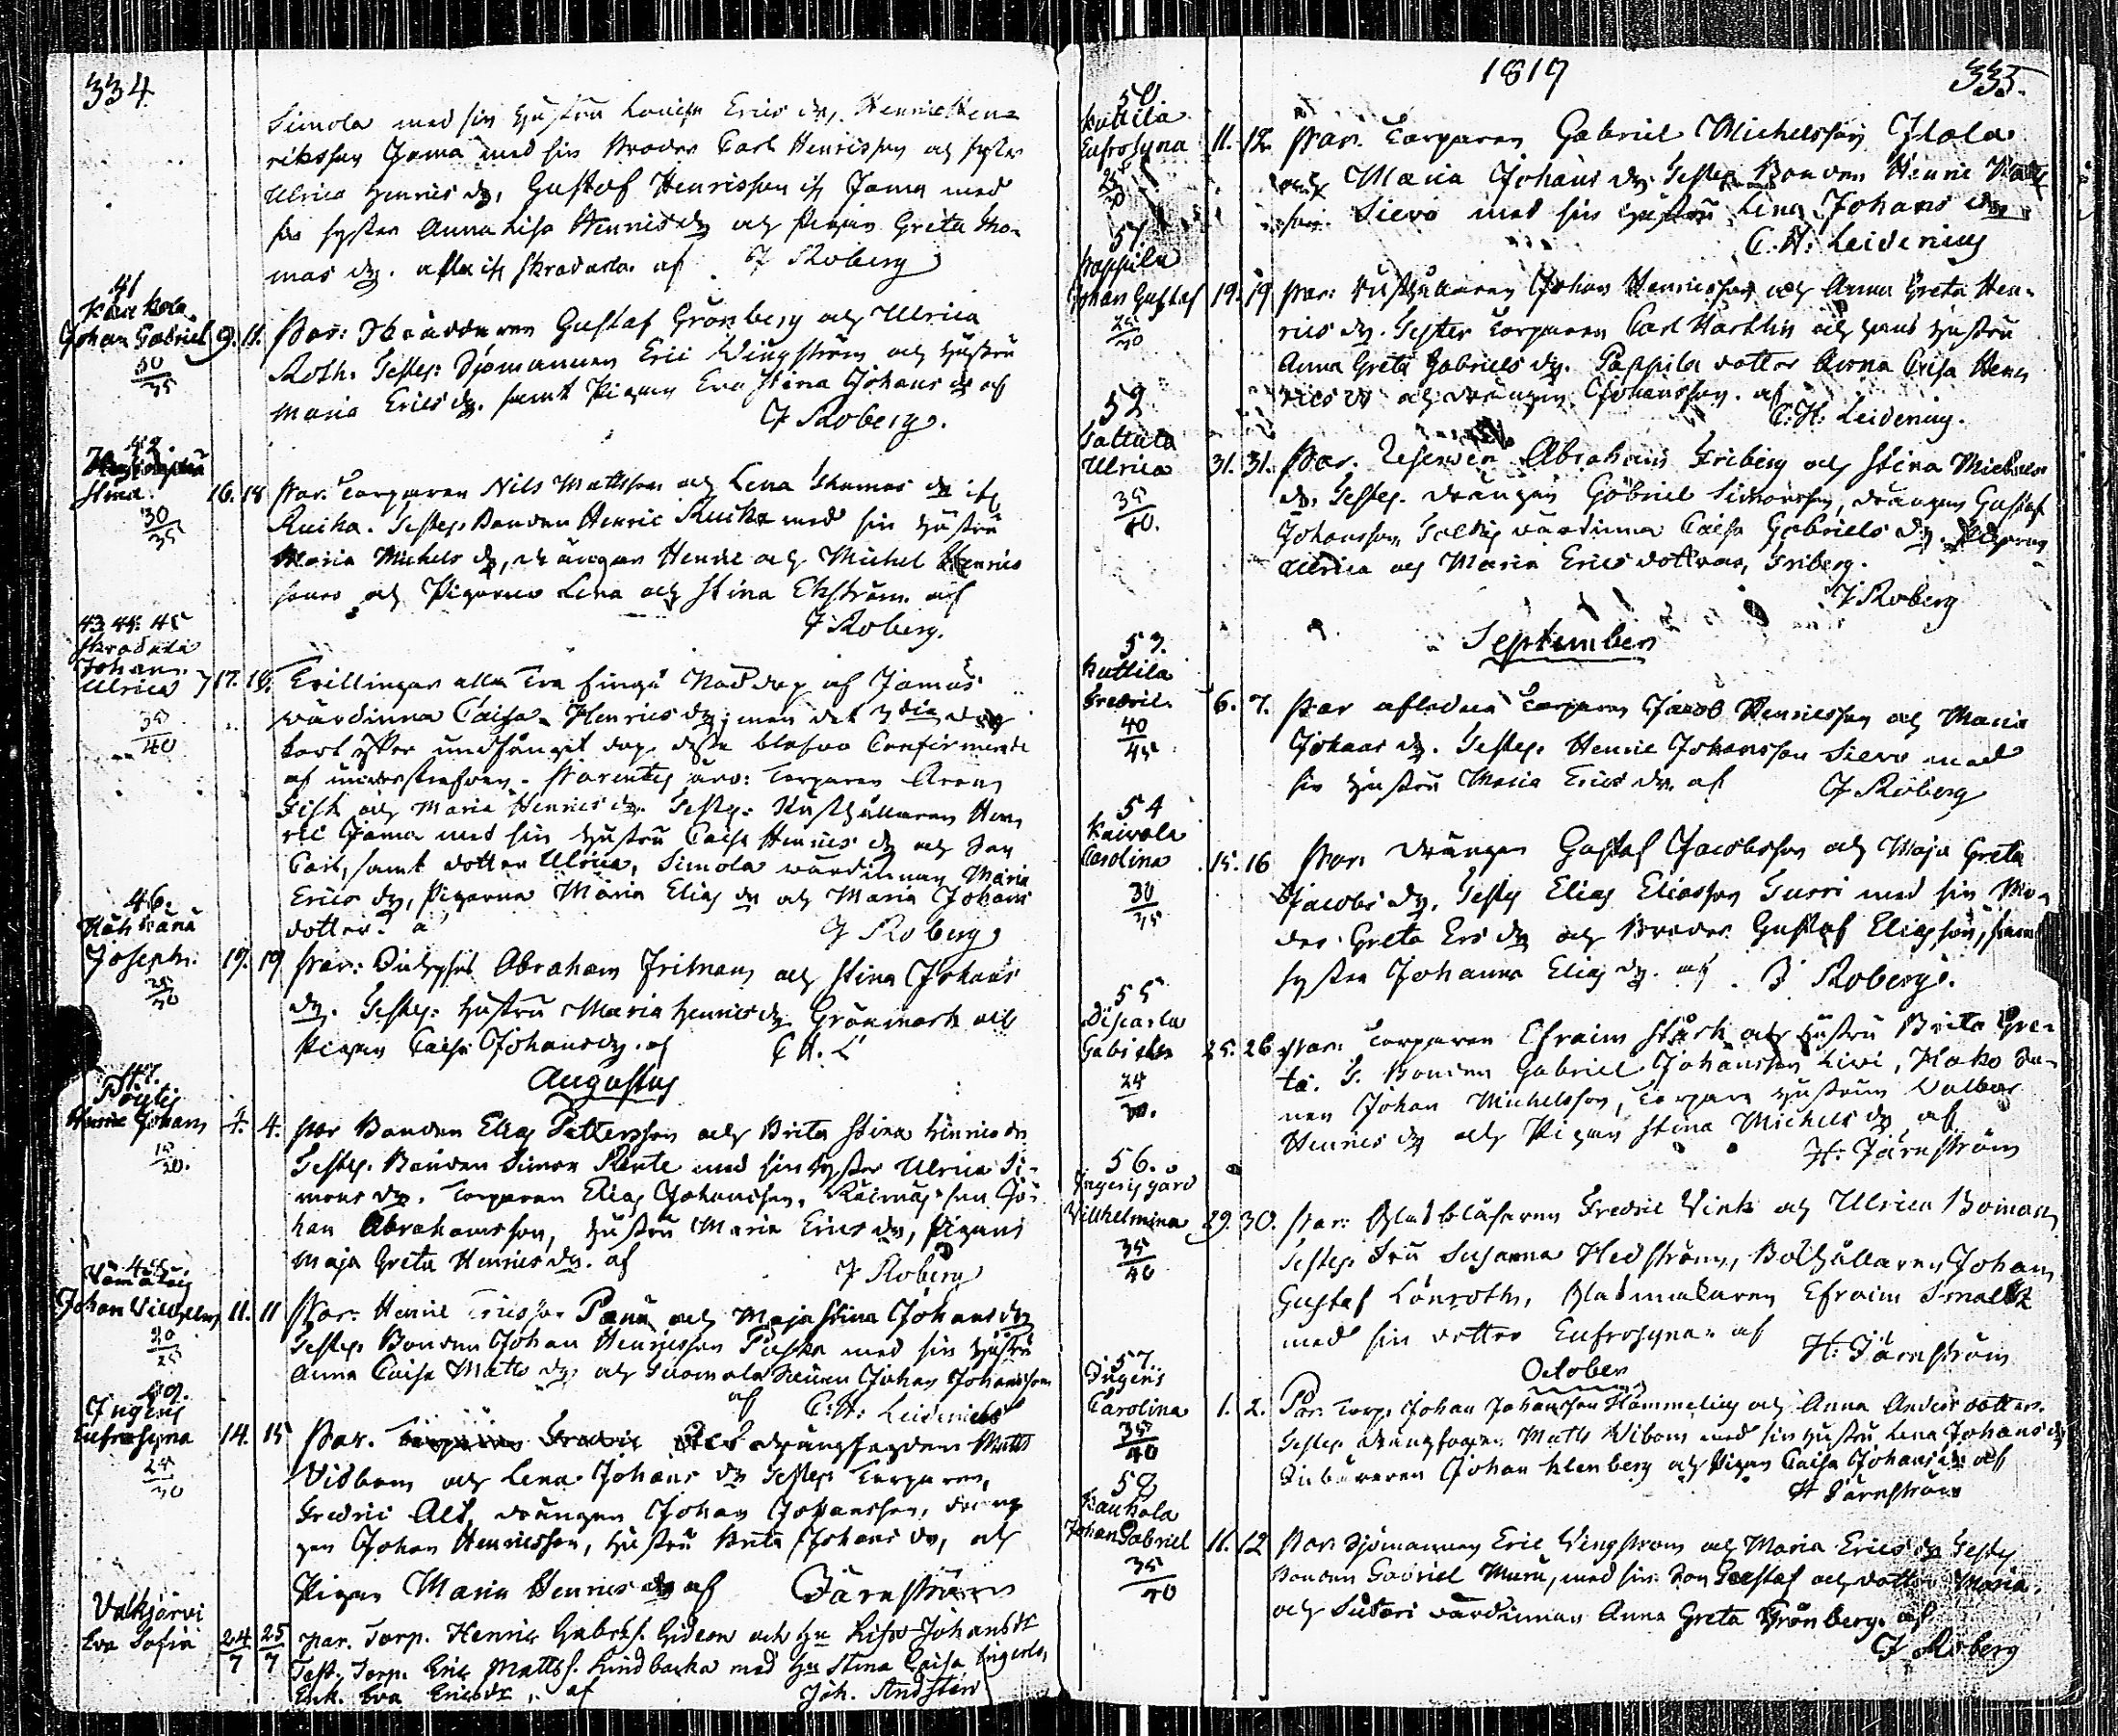 334.
Simola med sin hustru Louisa Erics dr, Henric Hen=
riksson Jama med sin broder Carl Henrisson och syster
Ulrica Henrics dr, Gustaf Henrisson ifr. Jama med
sin syster Anna Lisa Henrics dr och Pigan Greta Tho-
mas dr. alla ifr Skradarla. af J Roberg
41
Kaukola
Johan Gabriel 9. 11. Par: Gustaf Grönberg och Ulrica
30
35
Roth. Testes: Sjömannen Eric Wingström och hustru
Maria Erics dr. samt Pigan Eva Stina Johans dr af
J Roberg.
42
Stina. 16. 18 Par. Torparen Nils Mattsson och Lena Thomas dr ifr
30
35
Ruika. Testes Bonden Henric Ruika med sin hustru
Maria Michels dr, drängar Henric och Michel Henrics
soner och Pigorna Lena och Stina Ekström. af
J Roberg.
43. 44. 45
Skradarla
Johan.
Ulrica 17. 18. Trillingar alla Tre fingo Nöddop af Jamas
35
40
värdinna Caisa Henrics dr; men det 3die dog
kort efter undfånget dop. desse blefvo Confirmerade
af undertecknad. Parentes äro: Torparen Aron
Fisk och Maria Henrics dr. Testes: Rusthållaren Hen
ric Jama med sin hustru Caisa Henrics dr och Son
Carl, samt dotter Ulrica, Simola värdinnan Maria
Erics dr, Pigorna Maria Elias dr och Maria Johans
dotter. a J Roberg
46.
Joseph. 19. 19 Par: Abraham Friman och Stina Johans
25
30
dr. Testes: hustru Maria Henrics dr Grönmark och
Pigan Caisa Johans dr. af C H. L
Augustus
47.
Pöytis
Henric Johan 4. 4. Par Bonden Elias Pettersson och Brita Stina Henrics dr
15
20.
Testes. Bonden Simon Rente med sin syster Ulrica Si-
mons dr. Torparen Elias Johansson, Jo-
han Abrahamsson, hustru Maria Erics dr, Pigan
Maja Greta Henrics dr. af J Roberg
48.
Johan Wilhelm 11. 11 Par: Henric Ericsson Panu och Maja Stina Johans dr
20
25
Testes. Bonden Johan Henricsson med sin hustru
Anna Caisa Matts dr och Suomela Johan Johansson
af C: H: Leidenius
49.
Ingeris
Eufrosyna 14. 15 Par. drängfogden Matts
25
30
Vidbom och Lena Johans dr Testes Torparen,
Fredric Alt, drängen Johan Johansson, dräng
gen Johan Henricsson, hustru Brita Johans dr, och
Pigan Maria Henrics dr af Järnström
Valkjärvi
Eva Sofia 24/7 25/7 Par. Torp. Henric Gabriels. Gideon och hu Lisa Johansdr
Test. Torp. Eric Mattss. Lindbacka med hu Stina Caisa
Enk. Eva Ericsdr, af Joh. Andsten
1819
335.
50.
Kuttila
Eufrosyna 11. 12. Par. Torparen Gabriel Michelsson Jlola
25
30
och Maria Johans dr Testes Bonden Henric
Sievo med sin hustru Lena Johans dr
C. H: Leidenius
51.
Pappila
Johan Gustaf 19. 19 Par: Rusthållaren Johan Henricsson och Anna Greta Hen-
25
30
rics dr. Testes Torparen Carl Härtlin och hans hustru
Anna Greta Gabriels dr. Pappila dotter Anna Caisa Hen
rics dr och drängen Johansson. af
C. H: Leidenius.
52
Ulrica 31. 31. Par. Abraham Friberg och Stina Michels
35
40.
dr. Testes. drängen Gabriel Simonsson, drängen Gustaf
Johansson, värdinna Caisa Gabriels dr. Pigorna
Ulrica och Maria Erics döttrar, Friberg.
J Roberg
September
53.
Kuttila
Fredric. 6. 7. Par aflednu Torparen Jacob Henricsson och Maria
40
45
Johans dr. Testes. Henric Johansson Sievo med
sin hustru Maria Erics dr. af J Roberg
54
Kaivola
Carolina 15. 16 Par: drängen Gustaf Jacobsson och Maja Greta
30
35
Jacobs dr. Testes Elias Eliasson Tussi med sin Mo-
der Greta Ers dr och broder Gustaf Eliasson, samt
syster Johanna Elias dr. af J Roberg.
55
Gabriel 25. 26. Par: Torparen Efraim Stark och hustru Brita Gre-
25
30.
ta. T. Bonden Gabriel Johansson Livi, Hako So-
nen Johan Michelsson, Torpare hustrun Valbor
Henrics dr och Pigan Stina Michels dr af
H: Järnström
56.
Ingeris gård
Vilhelmina 29. 30. Par: Glasblåsaren Fredric Vink och Ulrica Boman
35
40
Testes. Fru Susanna Hedström, Bokhållaren Johan
Gustaf Lönroth, Glasmakaren Efraim Smalt
med sin dotter Eufrosyna. af H: Järnström
October
57.
Ingeris
Carolina 1. 2. Par. Torp. Johan Johansson Hammelin och Anna Anders dotter.
35
40
Testes drängfogden Matts Vibom med sin hustru Lena Johans dr
Johan Klenberg och Pigan Caisa Johans dr af
H Järnström
58
Kaukola
Johan Gabriel 11. 12 Par: Sjömannen Eric Vingström och Maria Erics dr Testes
35
40
Bonden Gabriel Muru, med sin Son Gustaf och dotter Maria.
och Sutari värdinnan Anna Greta Grönberg. af
J Roberg